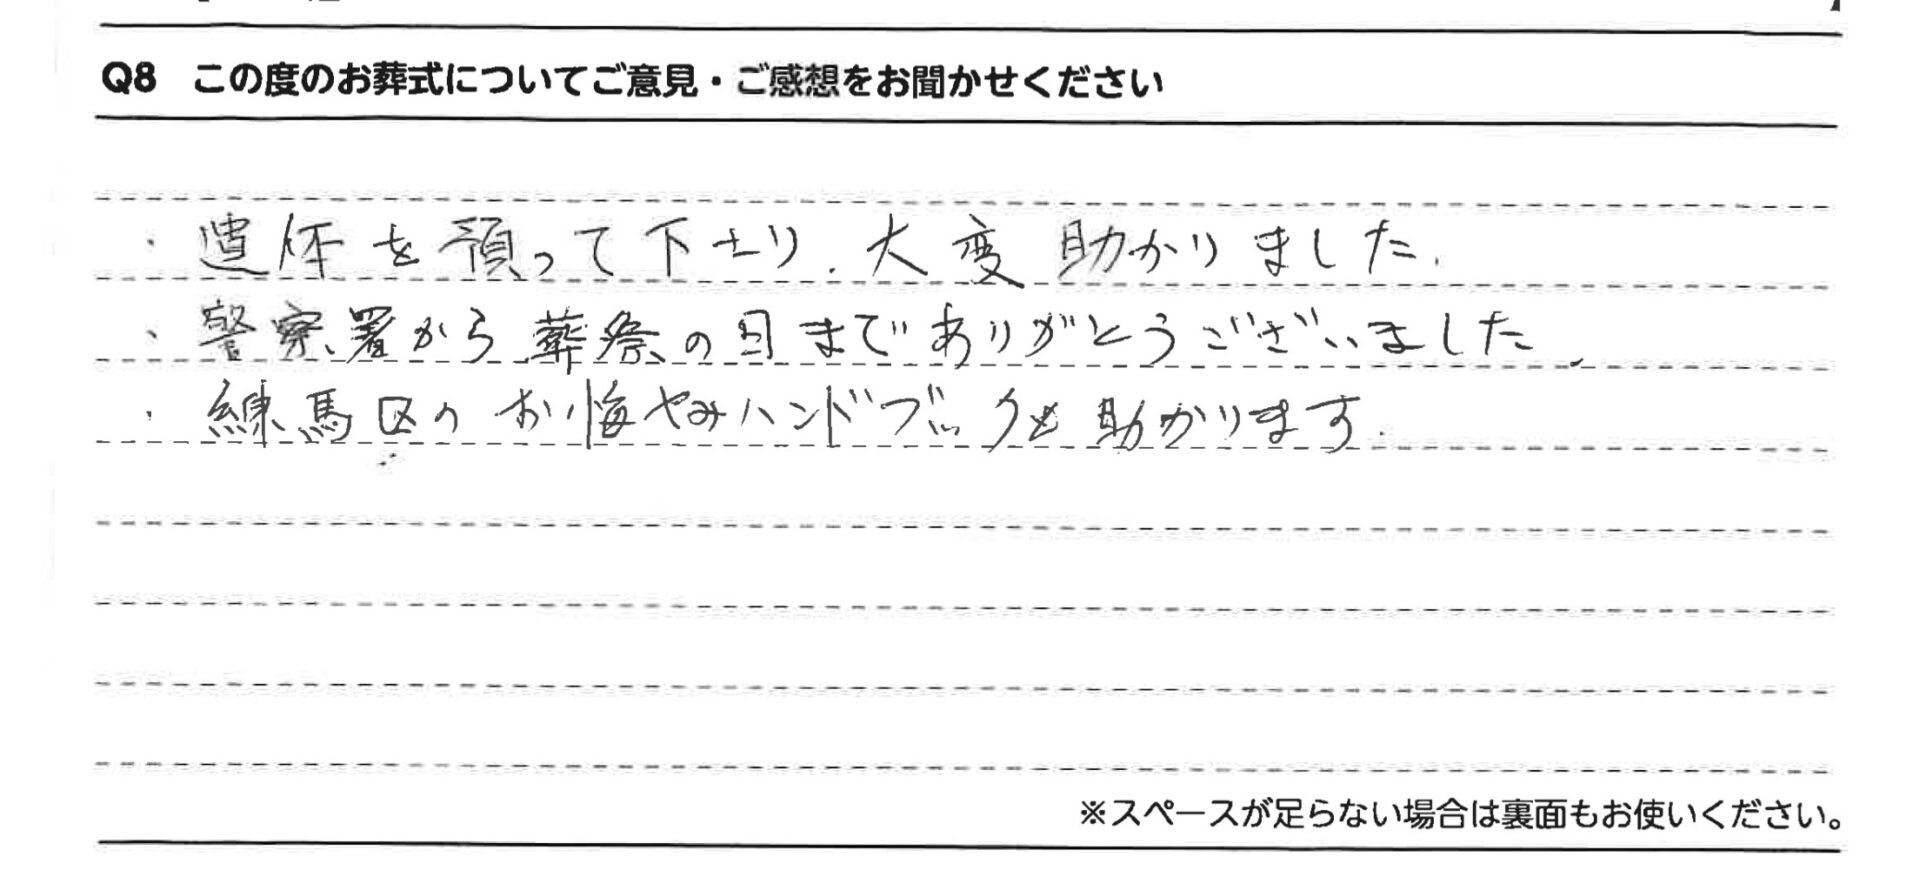 Q8 この度のお葬式についてご意見・ご感想をお聞かせください
・遺体を預って下さり、大変助かりました。
・警察署から葬祭の日までありがとうございました。
・練馬区のお悔やみハンドブックも助かります。
※スペースが足らない場合は裏面もお使いください。